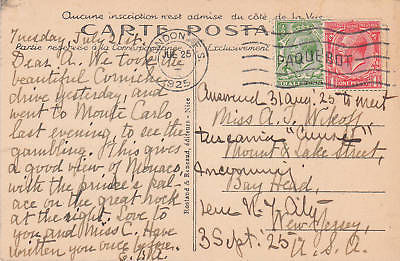 Aucune inscription n'est admise du côté de la Vue
CARTE POSTALE
Partie réservée à la Correspondance
Exclusivement
Tuesday, July 21st.
Dear A. We took the
beautiful Corniche
drive yesterday, and
went to Monte Carlo
last evening, to see the
gambling. This gives
a good view of Monaco,
with the prince's pal-
ace on the great rock
at the right. Love to
you and Miss C. Have
written you once before.
Rostand & Munier, éditeurs - Nice
LONDON
JUL 25
1925
PAQUEBOT
Answered 31 Aug '25 to meet
Miss A. I.
Tuscania "Cunard"
Mount & Lake Street,
incoming
Bay Head,
New Jersey,
N.Y. City
3 Sept. '25
U.S.A.